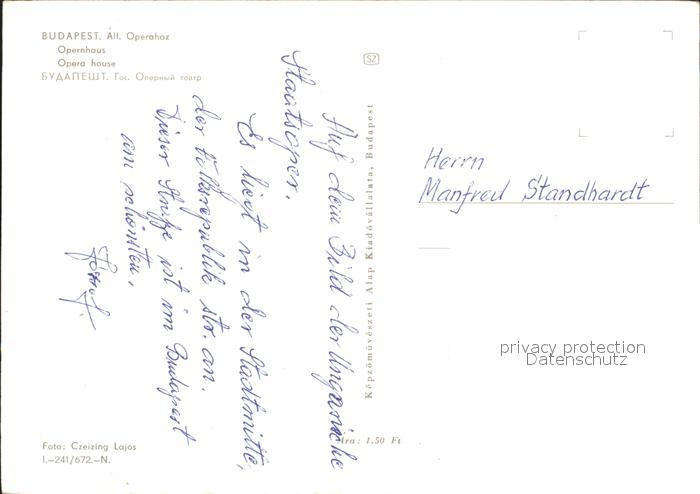 BUDAPEST. Áll. Operaház
Opernhaus
Opera house
БУДАПЕШТ. Гос. Оперный театр
SZ
Auf dem Bild der Ungarische
Staatsoper.
Es liegt in der Stadtmitte,
der Volksrepublik str. an.
Diese Straße ist im Budapest
am schönsten.
József
Képzőművészeti Alap Kiadóvállalata, Budapest
Herrn
Manfred Standhardt
privacy protection
Datenschutz
Foto: Czeizing Lajos
I.–241/672.–N.
Ára: 1,50 Ft